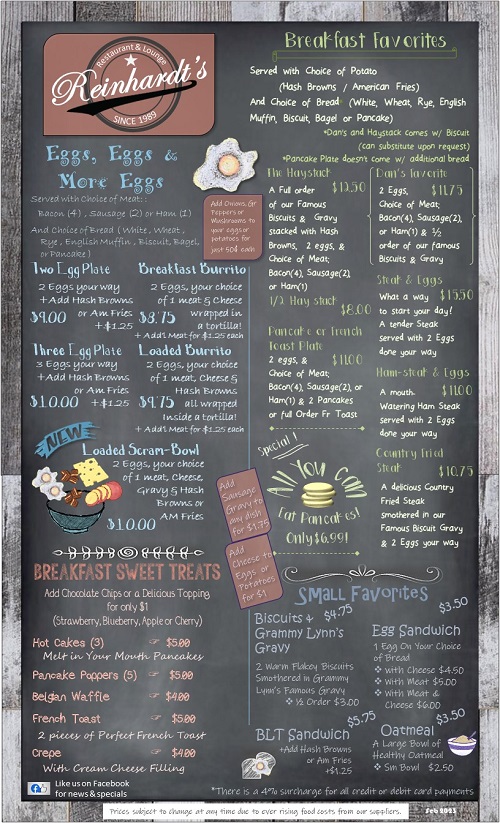 Restaurant & Lounge
Reinhardt's
SINCE 1989
Breakfast Favorites
Served with Choice of Potato
(Hash Browns / American Fries)
And Choice of Bread (White, Wheat, Rye, English
Muffin, Biscuit, Bagel or Pancake)
*Dan's and Haystack comes w/ Biscuit
(can substitute upon request)
*Pancake Plate doesn't come w/ additional bread
Eggs, Eggs &
More Eggs
Served with Choice of Meat:
Bacon (4), Sausage (2) or Ham (1)
And Choice of Bread (White, Wheat,
Rye, English Muffin, Biscuit, Bagel,
or Pancake)
Add Onions, Gr
Peppers or
Mushrooms to
your eggs or
potatoes for
just 50¢ each
Two Egg Plate
2 Eggs your way
+Add Hash Browns
or Am Fries
$9.00 +$1.25
Breakfast Burrito
2 Eggs, your choice
of 1 meat & Cheese
$8.75 wrapped in
a tortilla!
+Add'l Meat for $1.25 each
Three Egg Plate
3 Eggs your way
+Add Hash Browns
or Am Fries
$10.00 +$1.25
Loaded Burrito
2 Eggs, your choice
of 1 meat, Cheese &
Hash Browns
$9.75 all wrapped
Inside a tortilla!
+Add'l Meat for $1.25 each
NEW
Loaded Scram-Bowl
2 Eggs, your choice
of 1 meat, Cheese,
Gravy & Hash
Browns or
AM Fries
$10.00
The Haystack
A Full order $12.50
of our Famous
Biscuits & Gravy
stacked with Hash
Browns, 2 eggs, &
Choice of Meat;
Bacon(4), Sausage(2),
or Ham(1)
1/2 Hay stack
$8.00
Pancake or French
Toast Plate
2 eggs, & $11.00
Choice of Meat;
Bacon(4), Sausage(2), or
Ham(1) & 2 Pancakes
or full Order Fr Toast
Dan's favorite
2 Eggs, $11.75
Choice of Meat;
Bacon(4), Sausage(2),
or Ham(1) & ½
order of our famous
Biscuits & Gravy
Steak & Eggs
What a way $15.50
to start your day!
A tender Steak
served with 2 Eggs
done your way
Ham-steak & Eggs
A mouth- $11.00
Watering Ham Steak
served with 2 Eggs
done your way
Country Fried
Steak $10.75
A delicious Country
Fried Steak
smothered in our
Famous Biscuit Gravy
& 2 Eggs your way
Special!
All You Can
Eat Pancakes!
Only $6.99!
Add
Sausage
Gravy to
any dish
for $1.75
Add
Cheese to
Eggs or
Potatoes
for $1
BREAKFAST SWEET TREATS
Add Chocolate Chips or a Delicious Topping
for only $1
(Strawberry, Blueberry, Apple or Cherry)
Hot Cakes (3) ☞ $5.00
Melt in Your Mouth Pancakes
Pancake Poppers (5) ☞ $5.00
Belgian Waffle ☞ $4.00
French Toast ☞ $5.00
2 pieces of Perfect French Toast
Crepe ☞ $4.00
With Cream Cheese Filling
Small Favorites
Biscuits & $4.75
Grammy Lynn's
Gravy
2 Warm Flakey Biscuits
Smothered in Grammy
Lynn's Famous Gravy
❖ ½ Order $3.00
$3.50
Egg Sandwich
1 Egg On Your Choice
of Bread
❖ with Cheese $4.50
❖ with Meat $5.00
❖ With Meat &
Cheese $6.00
$5.75
BLT Sandwich
+Add Hash Browns
or Am Fries
+$1.25
$3.50
Oatmeal
A Large Bowl of
Healthy Oatmeal
❖ Sm Bowl $2.50
Like us on Facebook
for news & specials
*There is a 4% surcharge for all credit or debit card payments
Prices subject to change at any time due to ever rising food costs from our suppliers.
Feb 2023